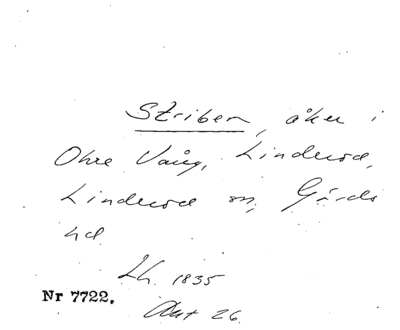 Striber, åker i
Ohre Vång, Linderöd,
Linderöd sn, Gärds
hd.
Lh. 1835
Nr 7722.
Akt 26.